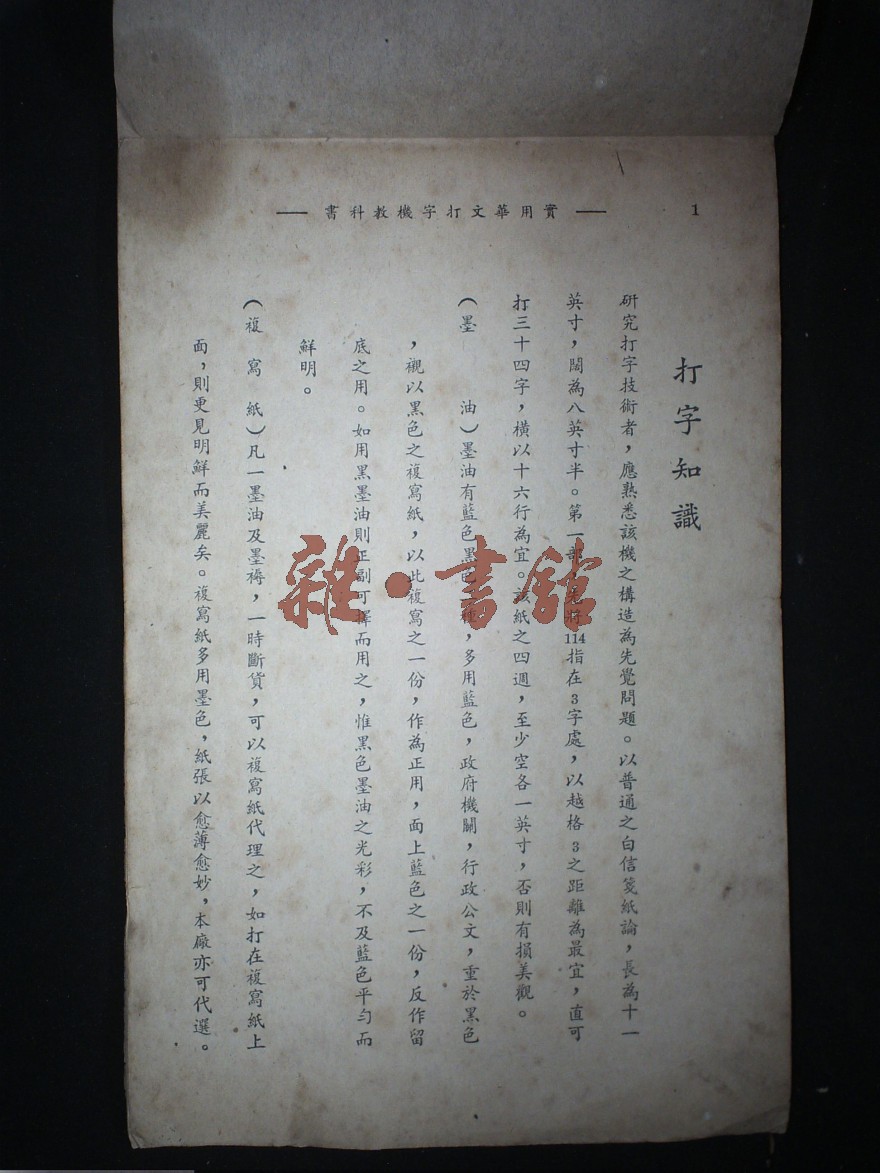 實用華文打字機教科書
1
打字知識
研究打字技術者，應熟悉該機之構造為先覺問題。以普通之白信箋紙論，長為十一
英寸，闊為八英寸半。第一部114指在3字處，以越格3之距離為最宜，直可
打三十四字，橫以十六行為宜。該紙之四週，至少空各一英寸，否則有損美觀。
（墨　　油）墨油有藍色黑色，多用藍色，政府機關，行政公文，重於黑色
，襯以黑色之複寫紙，以此複寫之一份，作為正用，面上藍色之一份，反作留
底之用。如用黑墨油則正副可擇而用之，惟黑色墨油之光彩，不及藍色平勻而
鮮明。
（複寫紙）凡一墨油及墨褥，一時斷貨，可以複寫紙代理之，如打在複寫紙上
面，則更見明鮮而美麗矣。複寫紙多用墨色，紙張以愈薄愈妙，本廠亦可代選。
雜·書館